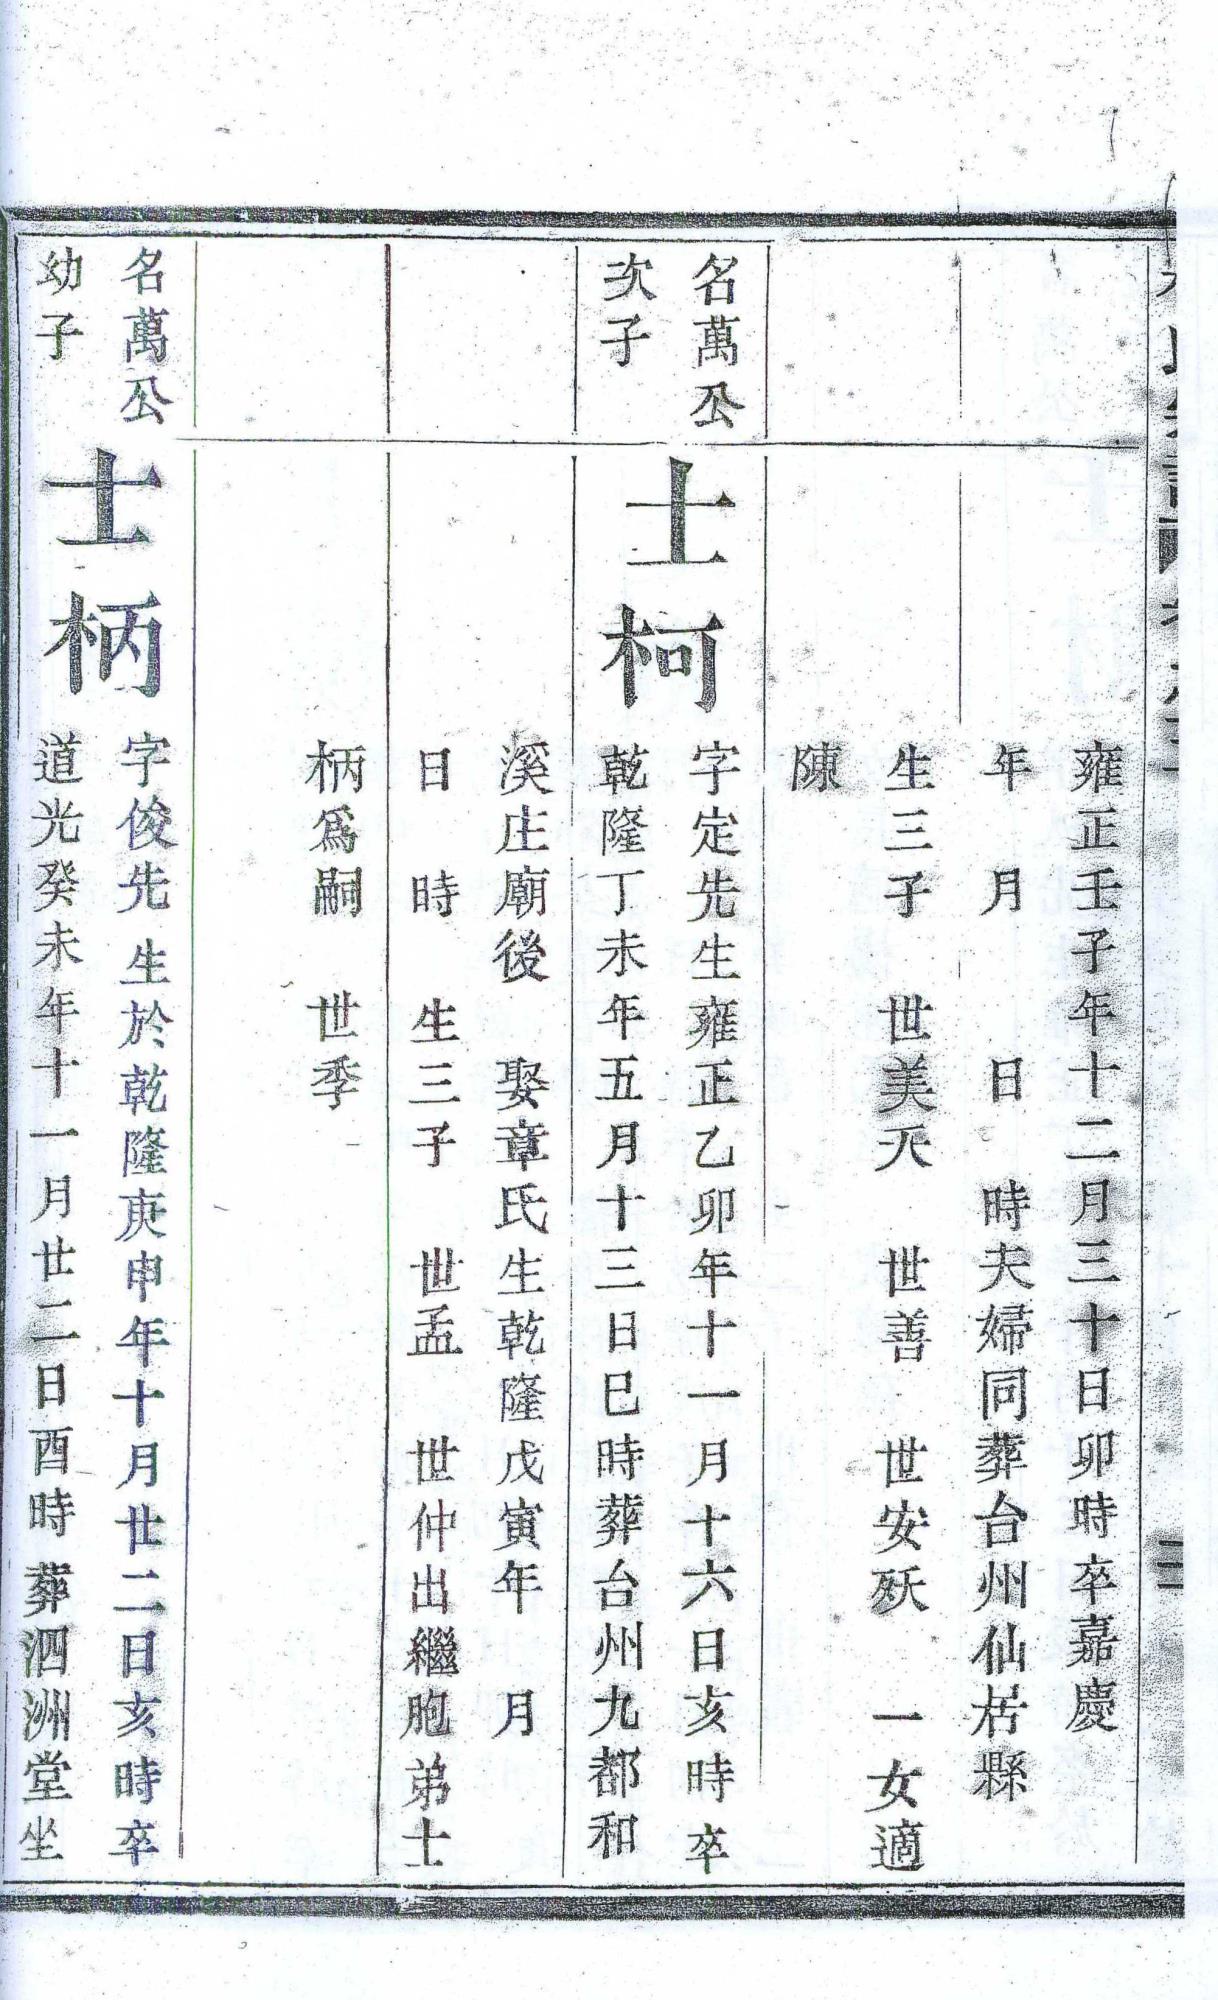 雍正壬子年十二月三十日卯時卒嘉慶
年　月　　日　時夫婦同葬台州仙居縣
生三子　世美夭　世善　世安殀　一女適
陳
名萬公
次子
士柯
字定先生雍正乙卯年十一月十六日亥時卒
乾隆丁未年五月十三日巳時葬台州九都和
溪庄廟後　娶章氏生乾隆戊寅年　月
日　時　生三子　世孟　世仲出繼胞弟士
柄爲嗣　世季
名萬公
幼子
士柄
字俊先生於乾隆庚申年十月廿二日亥時卒
道光癸未年十一月廿二日酉時葬泗洲堂坐